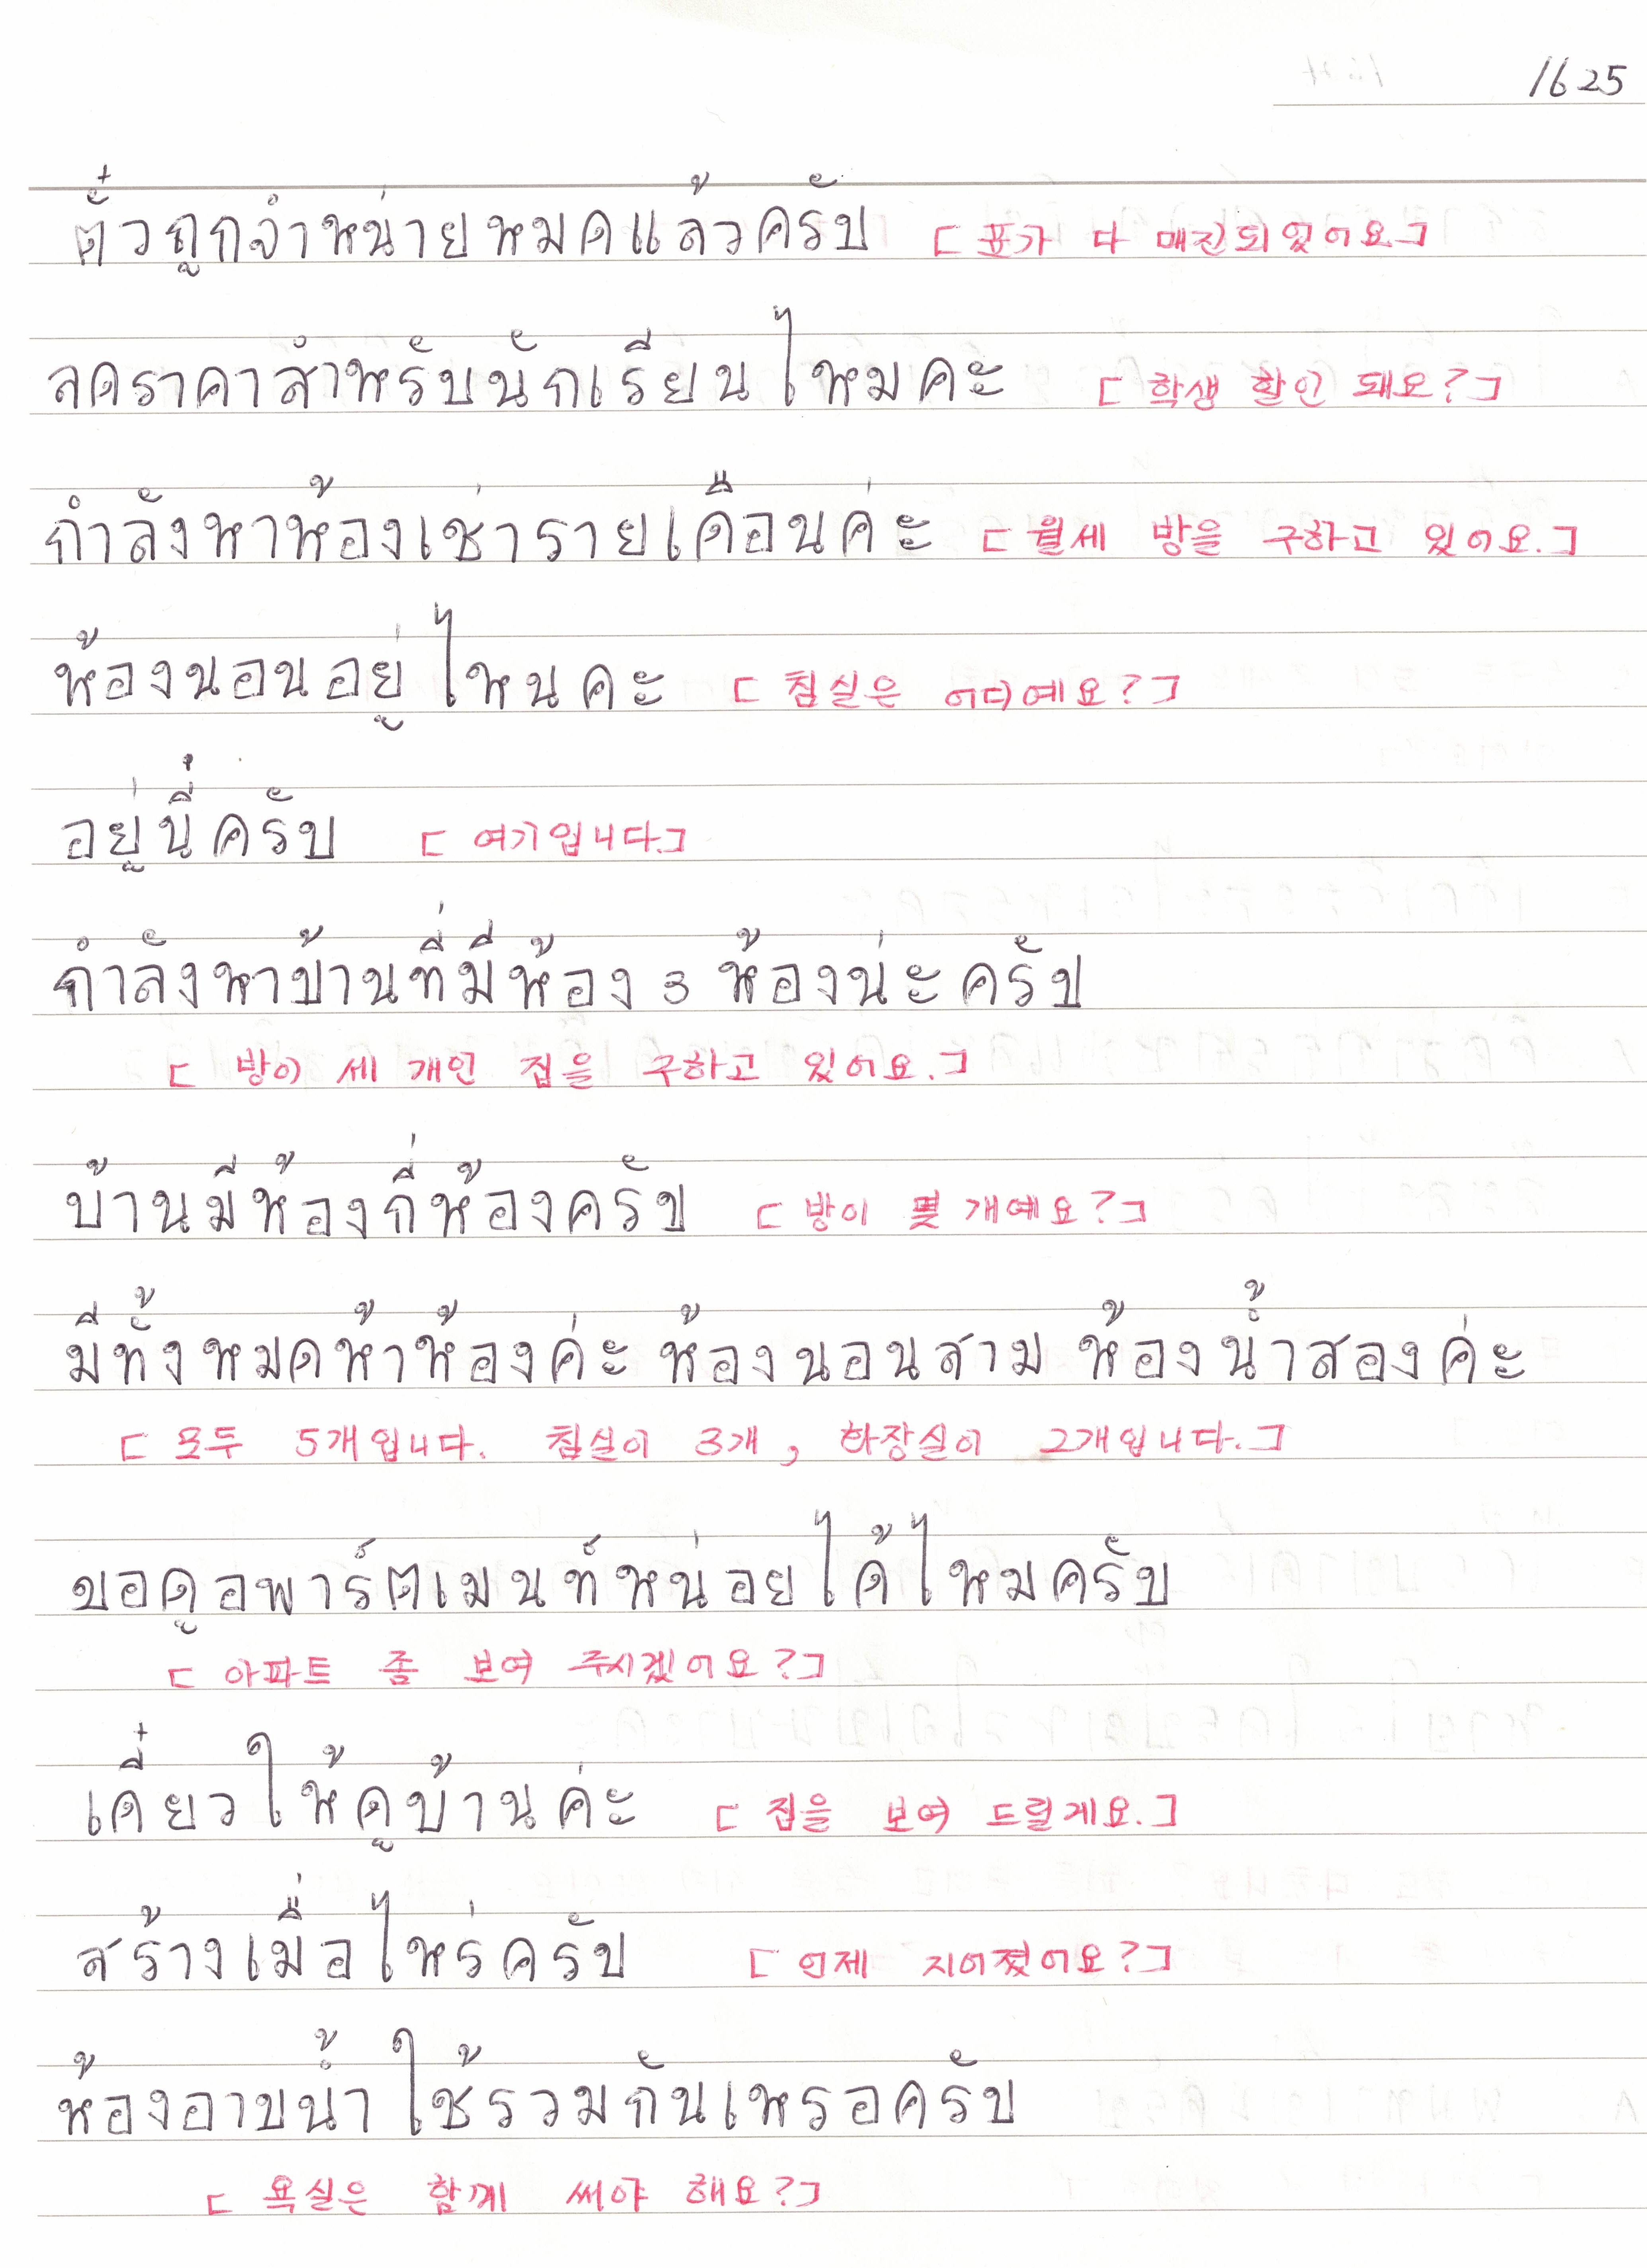 1625
ตั๋วถูกจำหน่ายหมดแล้วครับ [표가 다 매진되었어요.]
ลดราคาสำหรับนักเรียนไหมคะ [학생 할인 돼요?]
กำลังหาห้องเช่ารายเดือนค่ะ [월세 방을 구하고 있어요.]
ห้องนอนอยู่ไหนคะ [침실은 어디예요?]
อยู่นี่ครับ [여기입니다.]
กำลังหาบ้านที่มีห้อง 3 ห้องน่ะครับ
[방이 세 개인 집을 구하고 있어요.]
บ้านมีห้องกี่ห้องครับ [방이 몇 개예요?]
มีทั้งหมดห้าห้องค่ะ ห้องนอนสาม ห้องน้ำสองค่ะ
[모두 5개입니다. 침실이 3개, 화장실이 2개입니다.]
ขอดูอพาร์ตเมนท์หน่อยได้ไหมครับ
[아파트 좀 보여 주시겠어요?]
เดี๋ยวให้ดูบ้านค่ะ [집을 보여 드릴게요.]
สร้างเมื่อไหร่ครับ [언제 지어졌어요?]
ห้องอาบน้ำใช้รวมกันเหรอครับ
[욕실은 함께 써야 해요?]